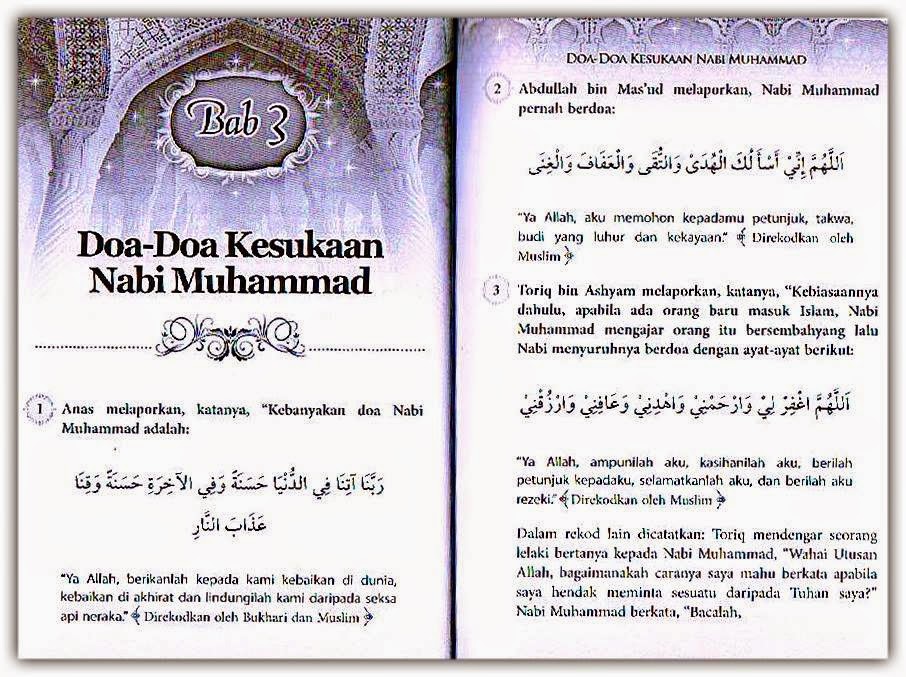 Bab 3
Doa-Doa Kesukaan
Nabi Muhammad
1 Anas melaporkan, katanya, “Kebanyakan doa Nabi
Muhammad adalah:
رَبَّنَا آتِنَا فِي الدُّنْيَا حَسَنَةً وَفِي الآخِرَةِ حَسَنَةً وَقِنَا
عَذَابَ النَّارِ
“Ya Allah, berikanlah kepada kami kebaikan di dunia,
kebaikan di akhirat dan lindungilah kami daripada seksa
api neraka.” ﴾ Direkodkan oleh Bukhari dan Muslim ﴿
DOA-DOA KESUKAAN NABI MUHAMMAD
2 Abdullah bin Mas’ud melaporkan, Nabi Muhammad
pernah berdoa:
اَللَّهُمَّ إِنِّيْ أَسْأَلُكَ الْهُدَىْ وَالتُّقَى وَالْعَفَافَ وَالْغِنَى
“Ya Allah, aku memohon kepadamu petunjuk, takwa,
budi yang luhur dan kekayaan.” ﴾ Direkodkan oleh
Muslim ﴿
3 Toriq bin Ashyam melaporkan, katanya, “Kebiasaannya
dahulu, apabila ada orang baru masuk Islam, Nabi
Muhammad mengajar orang itu bersembahyang lalu
Nabi menyuruhnya berdoa dengan ayat-ayat berikut:
اَللَّهُمَّ اغْفِرْ لِيْ وَارْحَمْنِيْ وَاهْدِنِيْ وَعَافِنِيْ وَارْزُقْنِيْ
“Ya Allah, ampunilah aku, kasihanilah aku, berilah
petunjuk kepadaku, selamatkanlah aku, dan berilah aku
rezeki.” ﴾ Direkodkan oleh Muslim ﴿
Dalam rekod lain dicatatkan: Toriq mendengar seorang
lelaki bertanya kepada Nabi Muhammad, “Wahai Utusan
Allah, bagaimanakah caranya saya mahu berkata apabila
saya hendak meminta sesuatu daripada Tuhan saya?”
Nabi Muhammad berkata, “Bacalah,